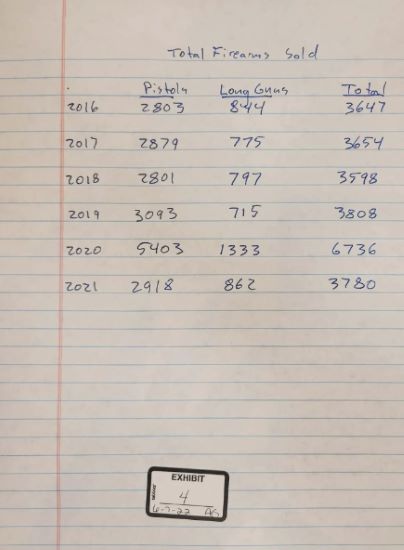 Total Firearms Sold
Pistols Long Guns Total
2016 2803 844 3647
2017 2879 775 3654
2018 2801 797 3598
2019 3093 715 3808
2020 5403 1333 6736
2021 2918 862 3780
EXHIBIT
4
6-7-22 AG